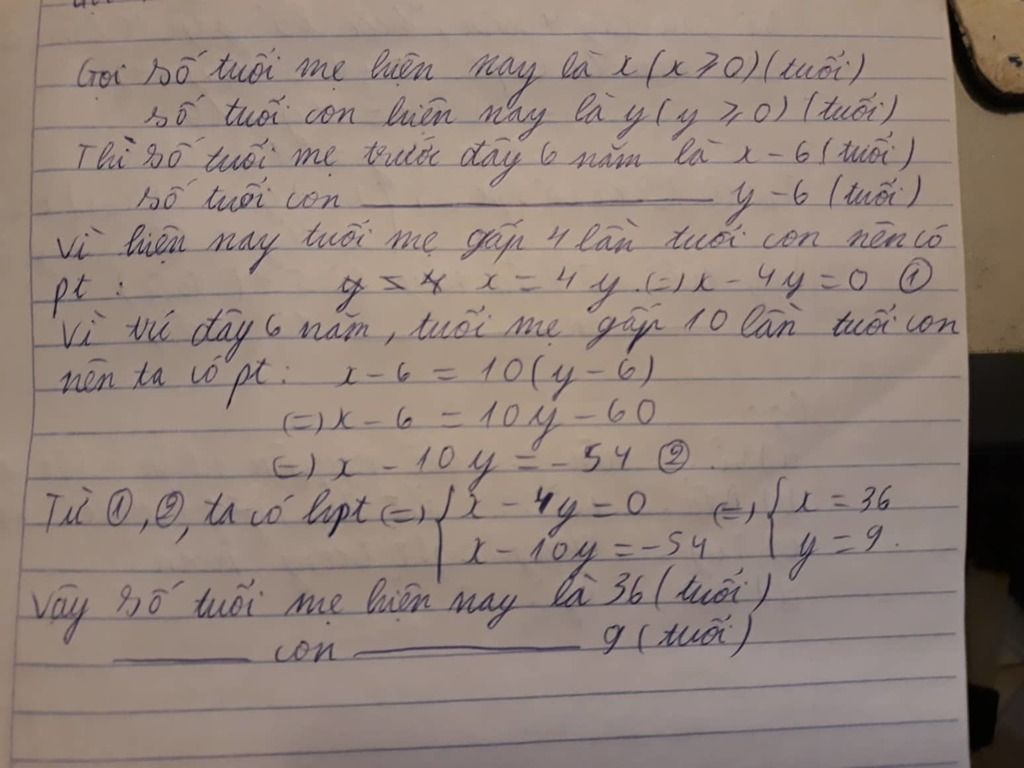 Gọi số tuổi mẹ hiện nay là x (x ⩾ 0) (tuổi)
số tuổi con hiện nay là y (y ⩾ 0) (tuổi)
Thì số tuổi mẹ trước đây 6 năm là x - 6 (tuổi)
số tuổi con ———— y - 6 (tuổi)
Vì hiện nay tuổi mẹ gấp 4 lần tuổi con nên có
pt : x = 4y (=) x - 4y = 0 ①
Vì trc đây 6 năm, tuổi mẹ gấp 10 lần tuổi con
nên ta có pt: x - 6 = 10(y - 6)
(=) x - 6 = 10y - 60
(=) x - 10y = -54 ②.
Từ ①, ②, ta có hpt (=) { x - 4y = 0 (=) { x = 36
x - 10y = -54 y = 9.
Vậy số tuổi mẹ hiện nay là 36 (tuổi)
——— con ———— 9 (tuổi)